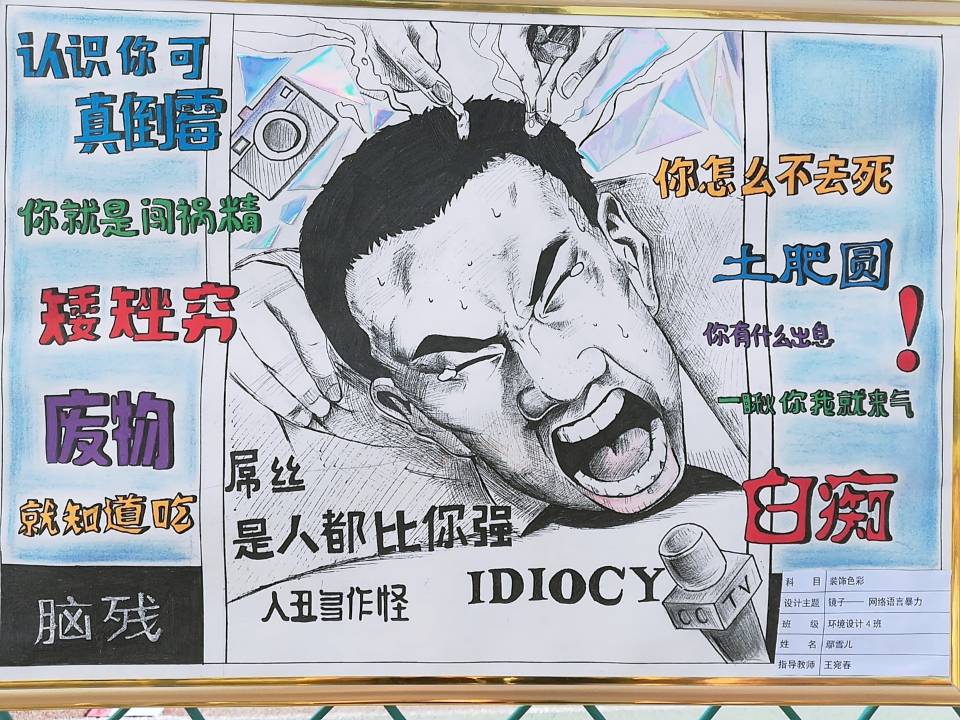 认识你可
真倒霉
你就是闯祸精
矮矬穷
废物
就知道吃
脑残
屌丝
是人都比你强
人丑多作怪
IDIOCY
CCTV
你怎么不去死
土肥圆
你有什么出息
一瞅你我就来气
!
白痴
科 目 装饰色彩
设计主题 镜子—— 网络语言暴力
班 级 环境设计4班
姓 名 鄢雪儿
指导教师 王宛春